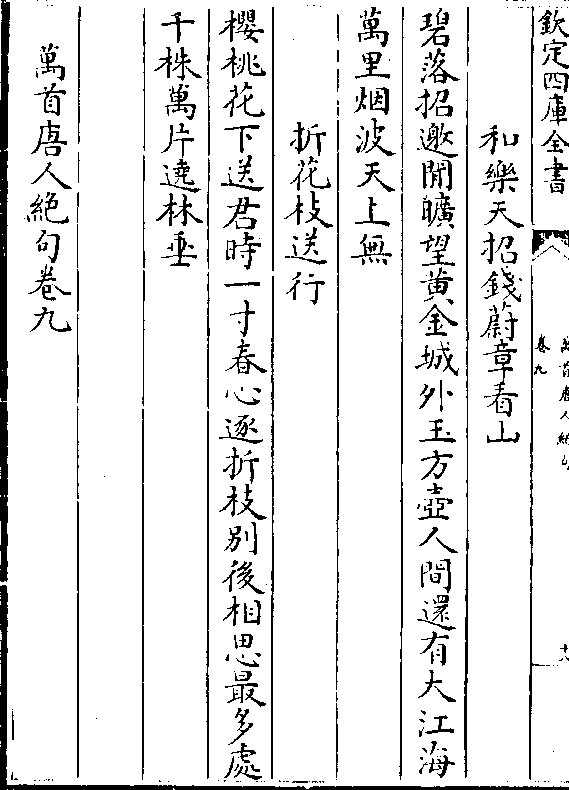 欽定四庫全書
萬首唐人絶句
卷九
十八
和樂天招錢蔚章看山
碧落招邀閒曠望黄金城外玉方壺人間還有大江海
萬里烟波天上無
折花枝送行
櫻桃花下送君時一寸春心逐折枝别後相思最多處
千株萬片遶林垂
萬首唐人絶句卷九